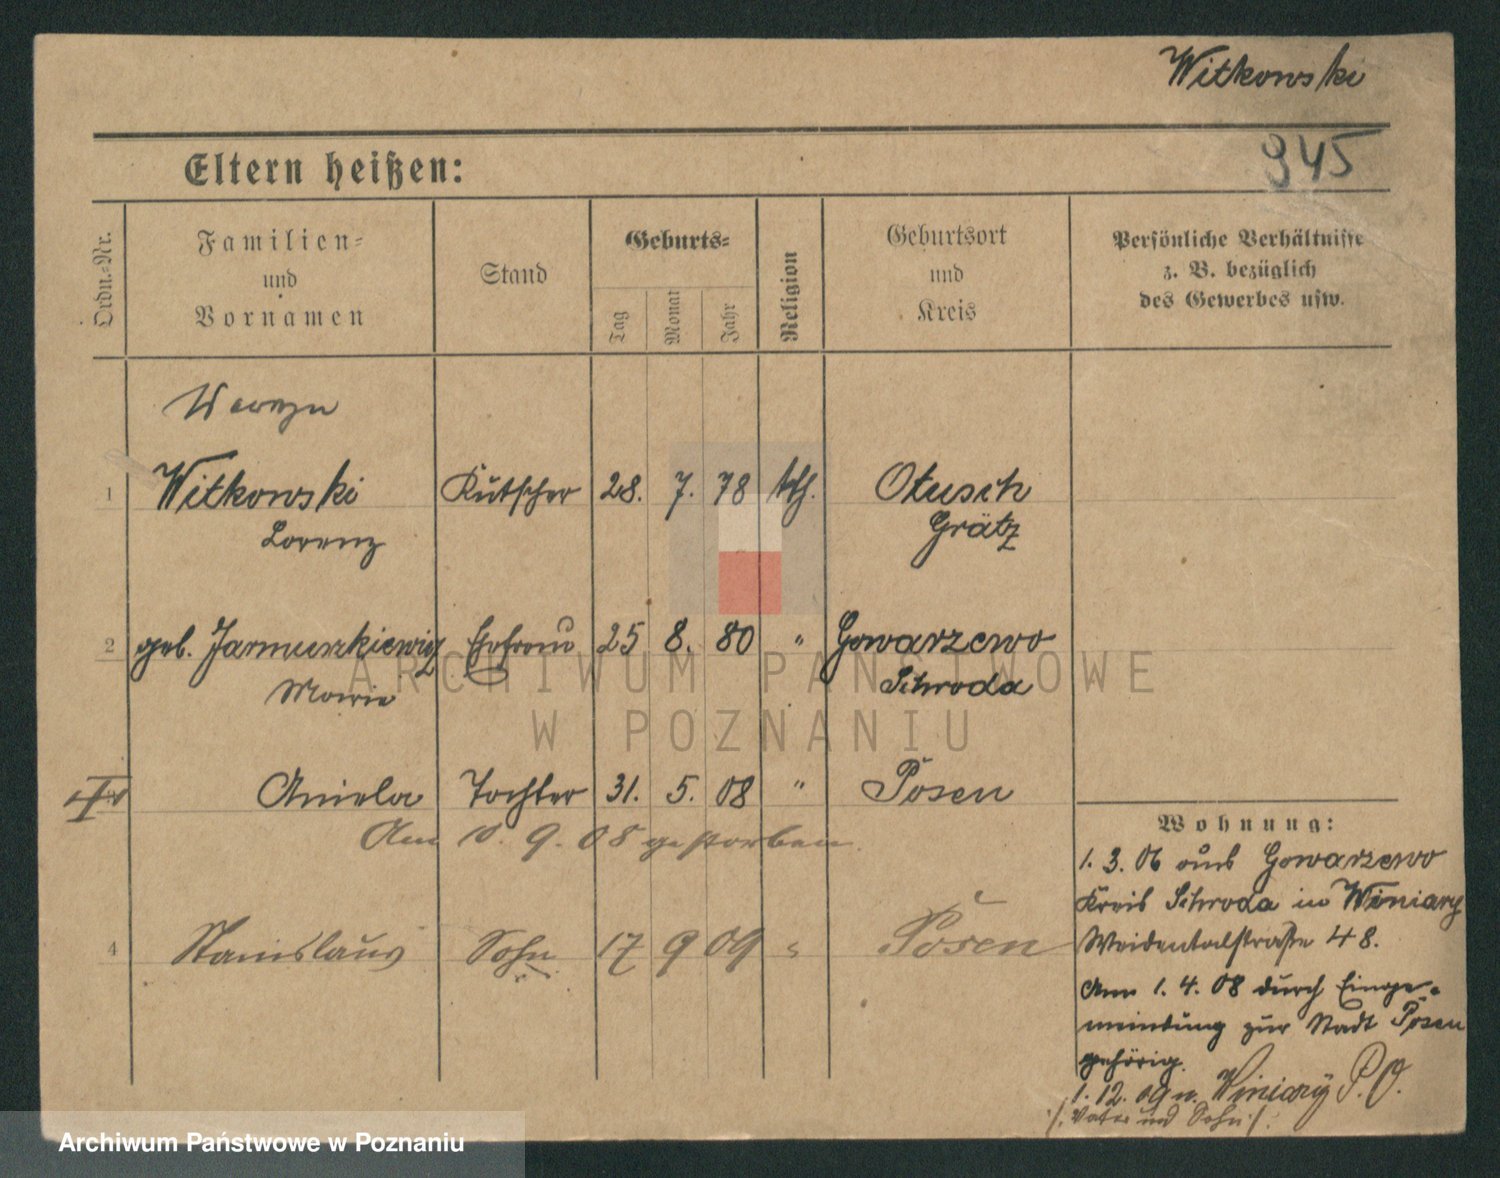 Witkowski
945
Eltern heißen:
Ordn.-Nr.
Familien-
und
Vornamen
Stand
Geburts-
Tag
Monat
Jahr
Religion
Geburtsort
und
Kreis
Persönliche Verhältnisse
z. B. bezüglich
des Gewerbes usw.
1 Witkowski Kutscher 28. 7. 78 kth. Otusch
Lorenz Grätz
2 geb. Jarmuszkiewicz Ehefrau 25 8. 80 " Gowarzewo
Marie Schroda
Aniela Tochter 31. 5. 08 " Posen
Am 10. 9. 08 gestorben.
4 Stanislaus Sohn 17 9 09 " Posen
Wohnung:
1. 3. 06 aus Gowarzewo
Kreis Schroda in Winiary
Weidentalstraße 48.
Am 1. 4. 08 durch Einge-
meindung zur Stadt Posen
gehörig.
1. 12. 09 n. Winiary P. O.
/. Vater und Sohn ./.
ARCHIWUM PAŃSTWOWE
W POZNANIU
Archiwum Państwowe w Poznaniu